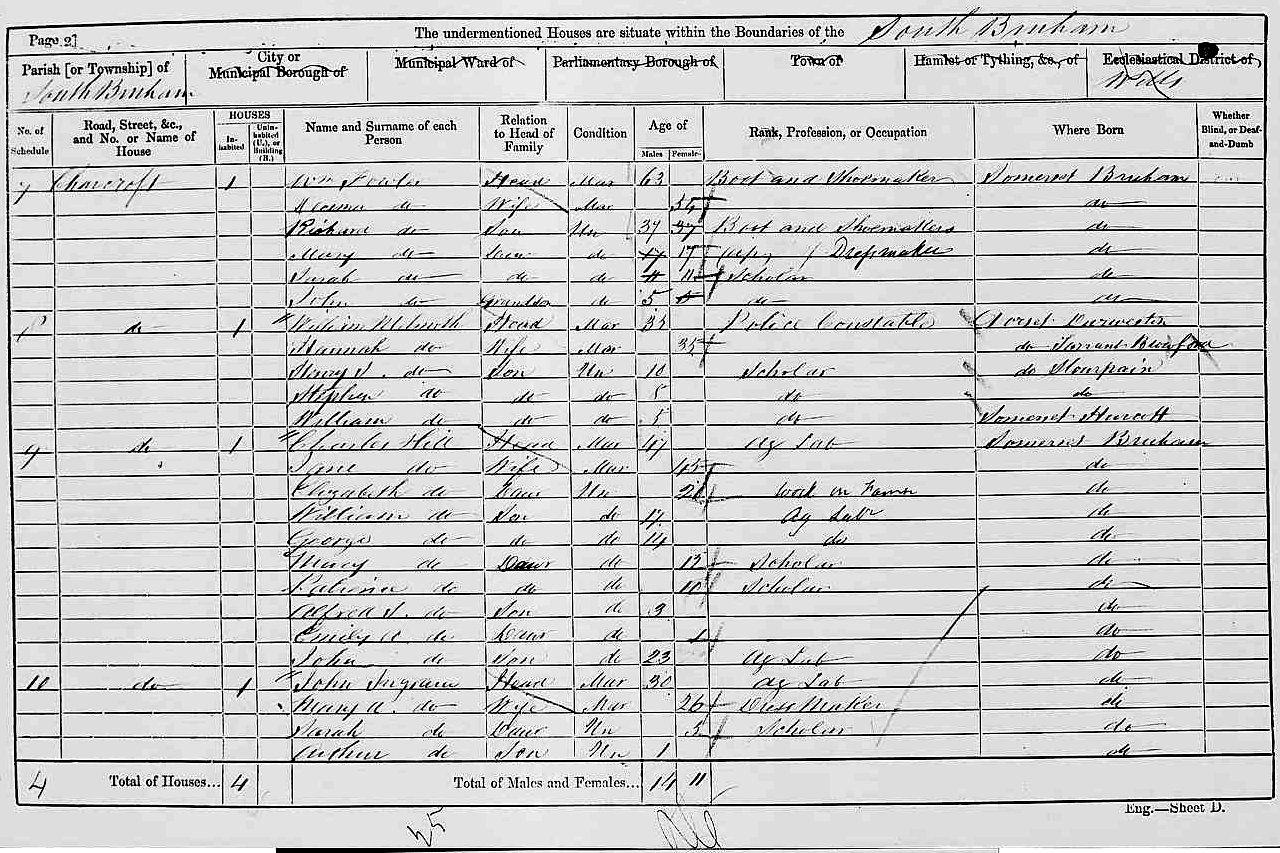 Page 2]
The undermentioned Houses are situate within the Boundaries of the South Bruham
Parish [or Township] of South Bruham
City or Municipal Borough of
Municipal Ward of
Parliamentary Borough of
Town of
Hamlet or Tything, &c., of
Ecclesiastical District of
No. of Schedule
Road, Street, &c., and No. or Name of House
HOUSES
Inhabited
Uninhabited (U.), or Building (B.)
Name and Surname of each Person
Relation to Head of Family
Condition
Age of
Males
Females
Rank, Profession, or Occupation
Where Born
Whether Blind, or Deaf-and-Dumb
7 Charcroft 1 Wm Fowler Head Mar 63 Boot and Shoemaker Somerset Bruham
do Wife Mar 54 do
Richard do Son Un 37 37 Boot and Shoemaker do
Mary do do 17 17 Dressmaker do
Sarah do do do 11 11 Scholar do
John do Grandson do 5 5 do do
8 do 1 William Head Mar 35 Police Constable Dorset Durweston
Hannah do Wife Mar 35 do Tarrant
Henry J. do Son Un 10 Scholar do Stourpain
Stephen do do do 5 do do
William do do do 5 do Somerset
9 do 1 Charles Hill Head Mar 47 Ag Lab Somerset Bruham
Jane do Wife Mar 45 do
Elizabeth do Daur Un Work on Farm do
William do Son do 17 Ag Labr do
George do do do 14 do do
Mary do Daur do 12 Scholar do
do do do 10 Scholar do
Alfred J. do Son do 3 do
Emily A. do Daur do 1 do
John do Son do 23 Ag Lab do
10 do 1 John Ingram Head Mar 30 Ag Lab do
Mary A. do Wife Mar 26 Dress Maker do
Sarah do Daur Un 5 Scholar do
Arthur do Son Un 1 do
4 Total of Houses... 4 Total of Males and Females... 14 11
25
Eng.—Sheet D.